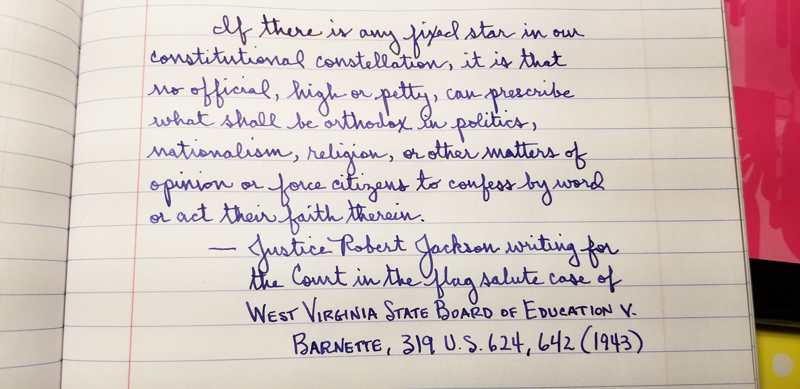 If there is any fixed star in our
constitutional constellation, it is that
no official, high or petty, can prescribe
what shall be orthodox in politics,
nationalism, religion, or other matters of
opinion or force citizens to confess by word
or act their faith therein.
— Justice Robert Jackson writing for
the Court in the flag salute case of
WEST VIRGINIA STATE BOARD OF EDUCATION V.
BARNETTE, 319 U.S. 624, 642 (1943)